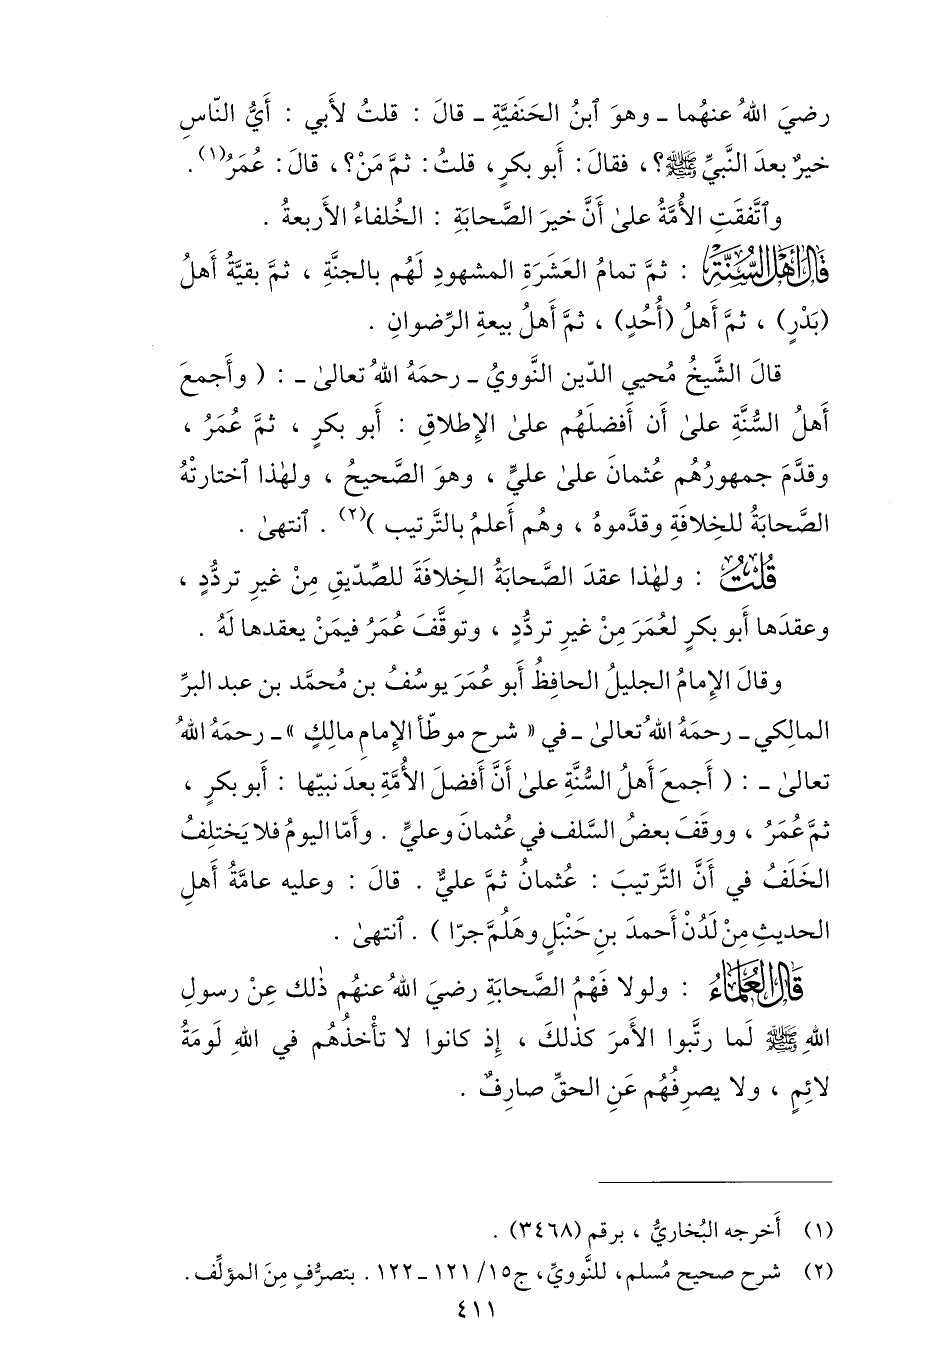 رضيَ اللهُ عنهُما ـ وهوَ ٱبنُ الحَنَفيَّةِ ـ قالَ : قلتُ لأَبي : أَيُّ النّاسِ
خيرٌ بعدَ النَّبيِّ ﷺ؟ ، فقالَ : أَبو بكرٍ ، قلتُ : ثمَّ مَنْ؟ ، قالَ : عُمَرُ(١) .
وٱتَّفقَتِ الأُمَّةُ علىٰ أَنَّ خيرَ الصَّحابَةِ : الخُلفاءُ الأَربعةُ .
قَالَ أَهْلُ السُّنَّةِ : ثمَّ تمامُ العَشَرَةِ المشهودِ لَهُم بالجنَّةِ ، ثمَّ بقيَّةُ أَهلُ
(بَدْرٍ) ، ثمَّ أَهلُ (أُحُدٍ) ، ثمَّ أَهلُ بيعةِ الرِّضوانِ .
قالَ الشَّيخُ مُحيي الدّين النَّوويُّ ـ رحمَهُ اللهُ تعالىٰ ـ : ( وأَجمعَ
أَهلُ السُّنَّةِ علىٰ أَن أَفضلَهُم علىٰ الإِطلاقِ : أَبو بكرٍ ، ثمَّ عُمَرُ ،
وقدَّمَ جمهورُهُم عُثمانَ علىٰ عليٍّ ، وهوَ الصَّحيحُ ، ولهٰذا ٱختارتْهُ
الصَّحابَةُ للخِلافَةِ وقدَّموهُ ، وهُم أَعلمُ بالتَّرتيب )(٢) . ٱنتهىٰ .
قُلْتُ : ولهٰذا عقدَ الصَّحابَةُ الخِلافَةَ للصِّدّيقِ مِنْ غيرِ تردُّدٍ ،
وعقدَها أَبو بكرٍ لعُمَرَ مِنْ غيرِ تردُّدٍ ، وتوقَّفَ عُمَرُ فيمَنْ يعقدها لَهُ .
وقالَ الإِمامُ الجليلُ الحافِظُ أَبو عُمَرَ يوسُفُ بن مُحمَّد بن عبد البرِّ
المالِكي ـ رحمَهُ اللهُ تعالىٰ ـ في « شرح موطّأ الإِمامِ مالِكٍ » ـ رحمَهُ اللهُ
تعالىٰ ـ : ( أَجمعَ أَهلُ السُّنَّةِ علىٰ أَنَّ أَفضلَ الأُمَّةِ بعدَ نبيّها : أَبو بكرٍ ،
ثمَّ عُمَرُ ، ووقَفَ بعضُ السَّلف في عُثمانَ وعليٍّ . وأَمّا اليومُ فلا يَختلِفُ
الخَلَفُ في أَنَّ التَّرتيبَ : عُثمانُ ثمَّ عليٌّ . قالَ : وعليه عامَّةُ أَهلِ
الحديثِ مِنْ لَدُنْ أَحمدَ بنِ حَنْبَلٍ وهَلُمَّ جرّا ) . ٱنتهىٰ .
قَالَ العُلَمَاءُ : ولولا فَهْمُ الصَّحابَةِ رضيَ اللهُ عنهُم ذٰلك عِنْ رسولِ
اللهِ ﷺ لَما رتَّبوا الأَمرَ كذٰلكَ ، إِذ كانوا لا تأْخذُهُم في اللهِ لَومَةُ
لائِمٍ ، ولا يصرِفُهُم عَنِ الحقِّ صارِفٌ .
(١) أَخرجه البُخاريُّ ، برقم (٣٤٦٨) .
(٢) شرح صحيح مُسلم، للنَّوويِّ، ج١٥/ ١٢١ـ١٢٢ . بتصرُّفٍ مِنَ المؤلِّف .
٤١١